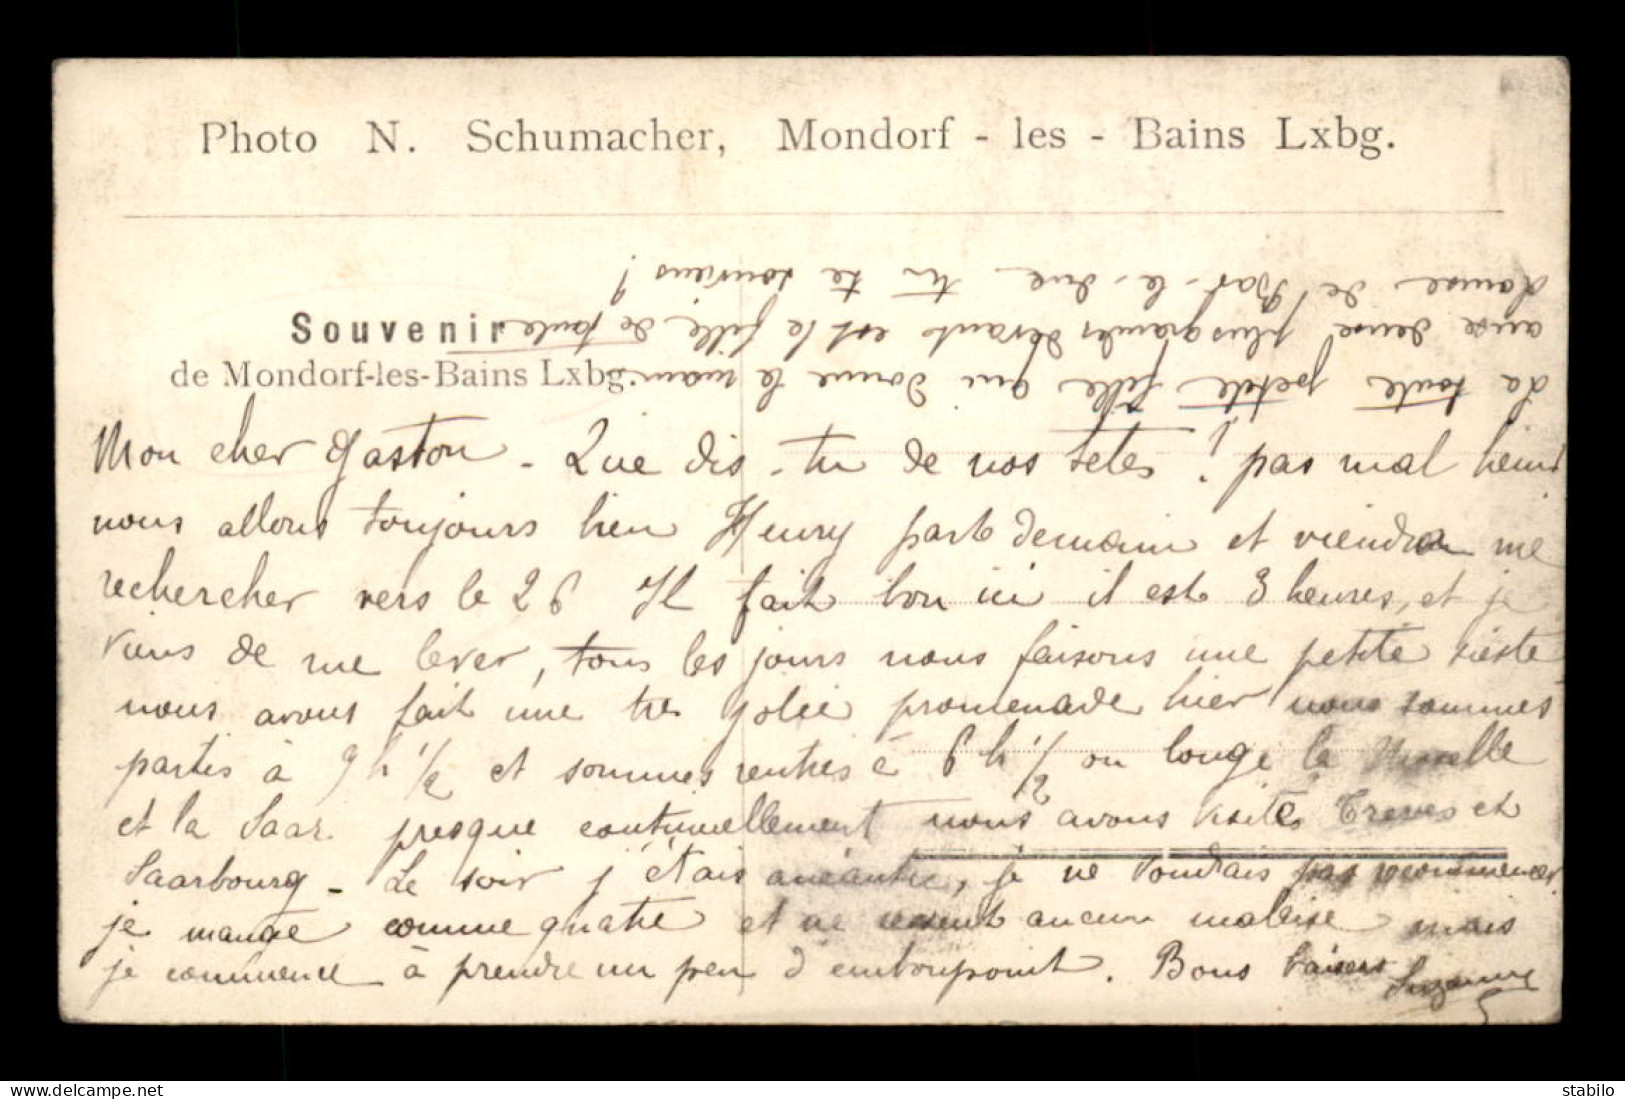 Photo N. Schumacher, Mondorf - les - Bains Lxbg.
Souvenir
de Mondorf-les-Bains Lxbg.
La toute petite fille qui donne la main
aux deux plus grandes devant est la fille de
danse de Bar-le-duc tu te souviens !
Mon cher Gaston - Que dis-tu de nos têtes ? pas mal hein !
nous allons toujours bien Henry part demain et viendra me
rechercher vers le 26 Il fait bon ici il est 3 heures, et je
viens de me lever, tous les jours nous faisons une petite sieste
nous avons fait une tre jolie promenade hier nous sommes
partis à 9 h 1/2 et sommes rentrés à 6 h 1/2 on longe la Moselle
et la Saar presque continuellement nous avons visité Trèves et
Saarbourg - Le soir j'étais anéantie, je ne voudrais pas recommencer
je mange comme quatre et ne ressent aucun malaise mais
je commence à prendre un peu d'embonpoint. Bons baisers Suzanne
stabilo
www.delcampe.net